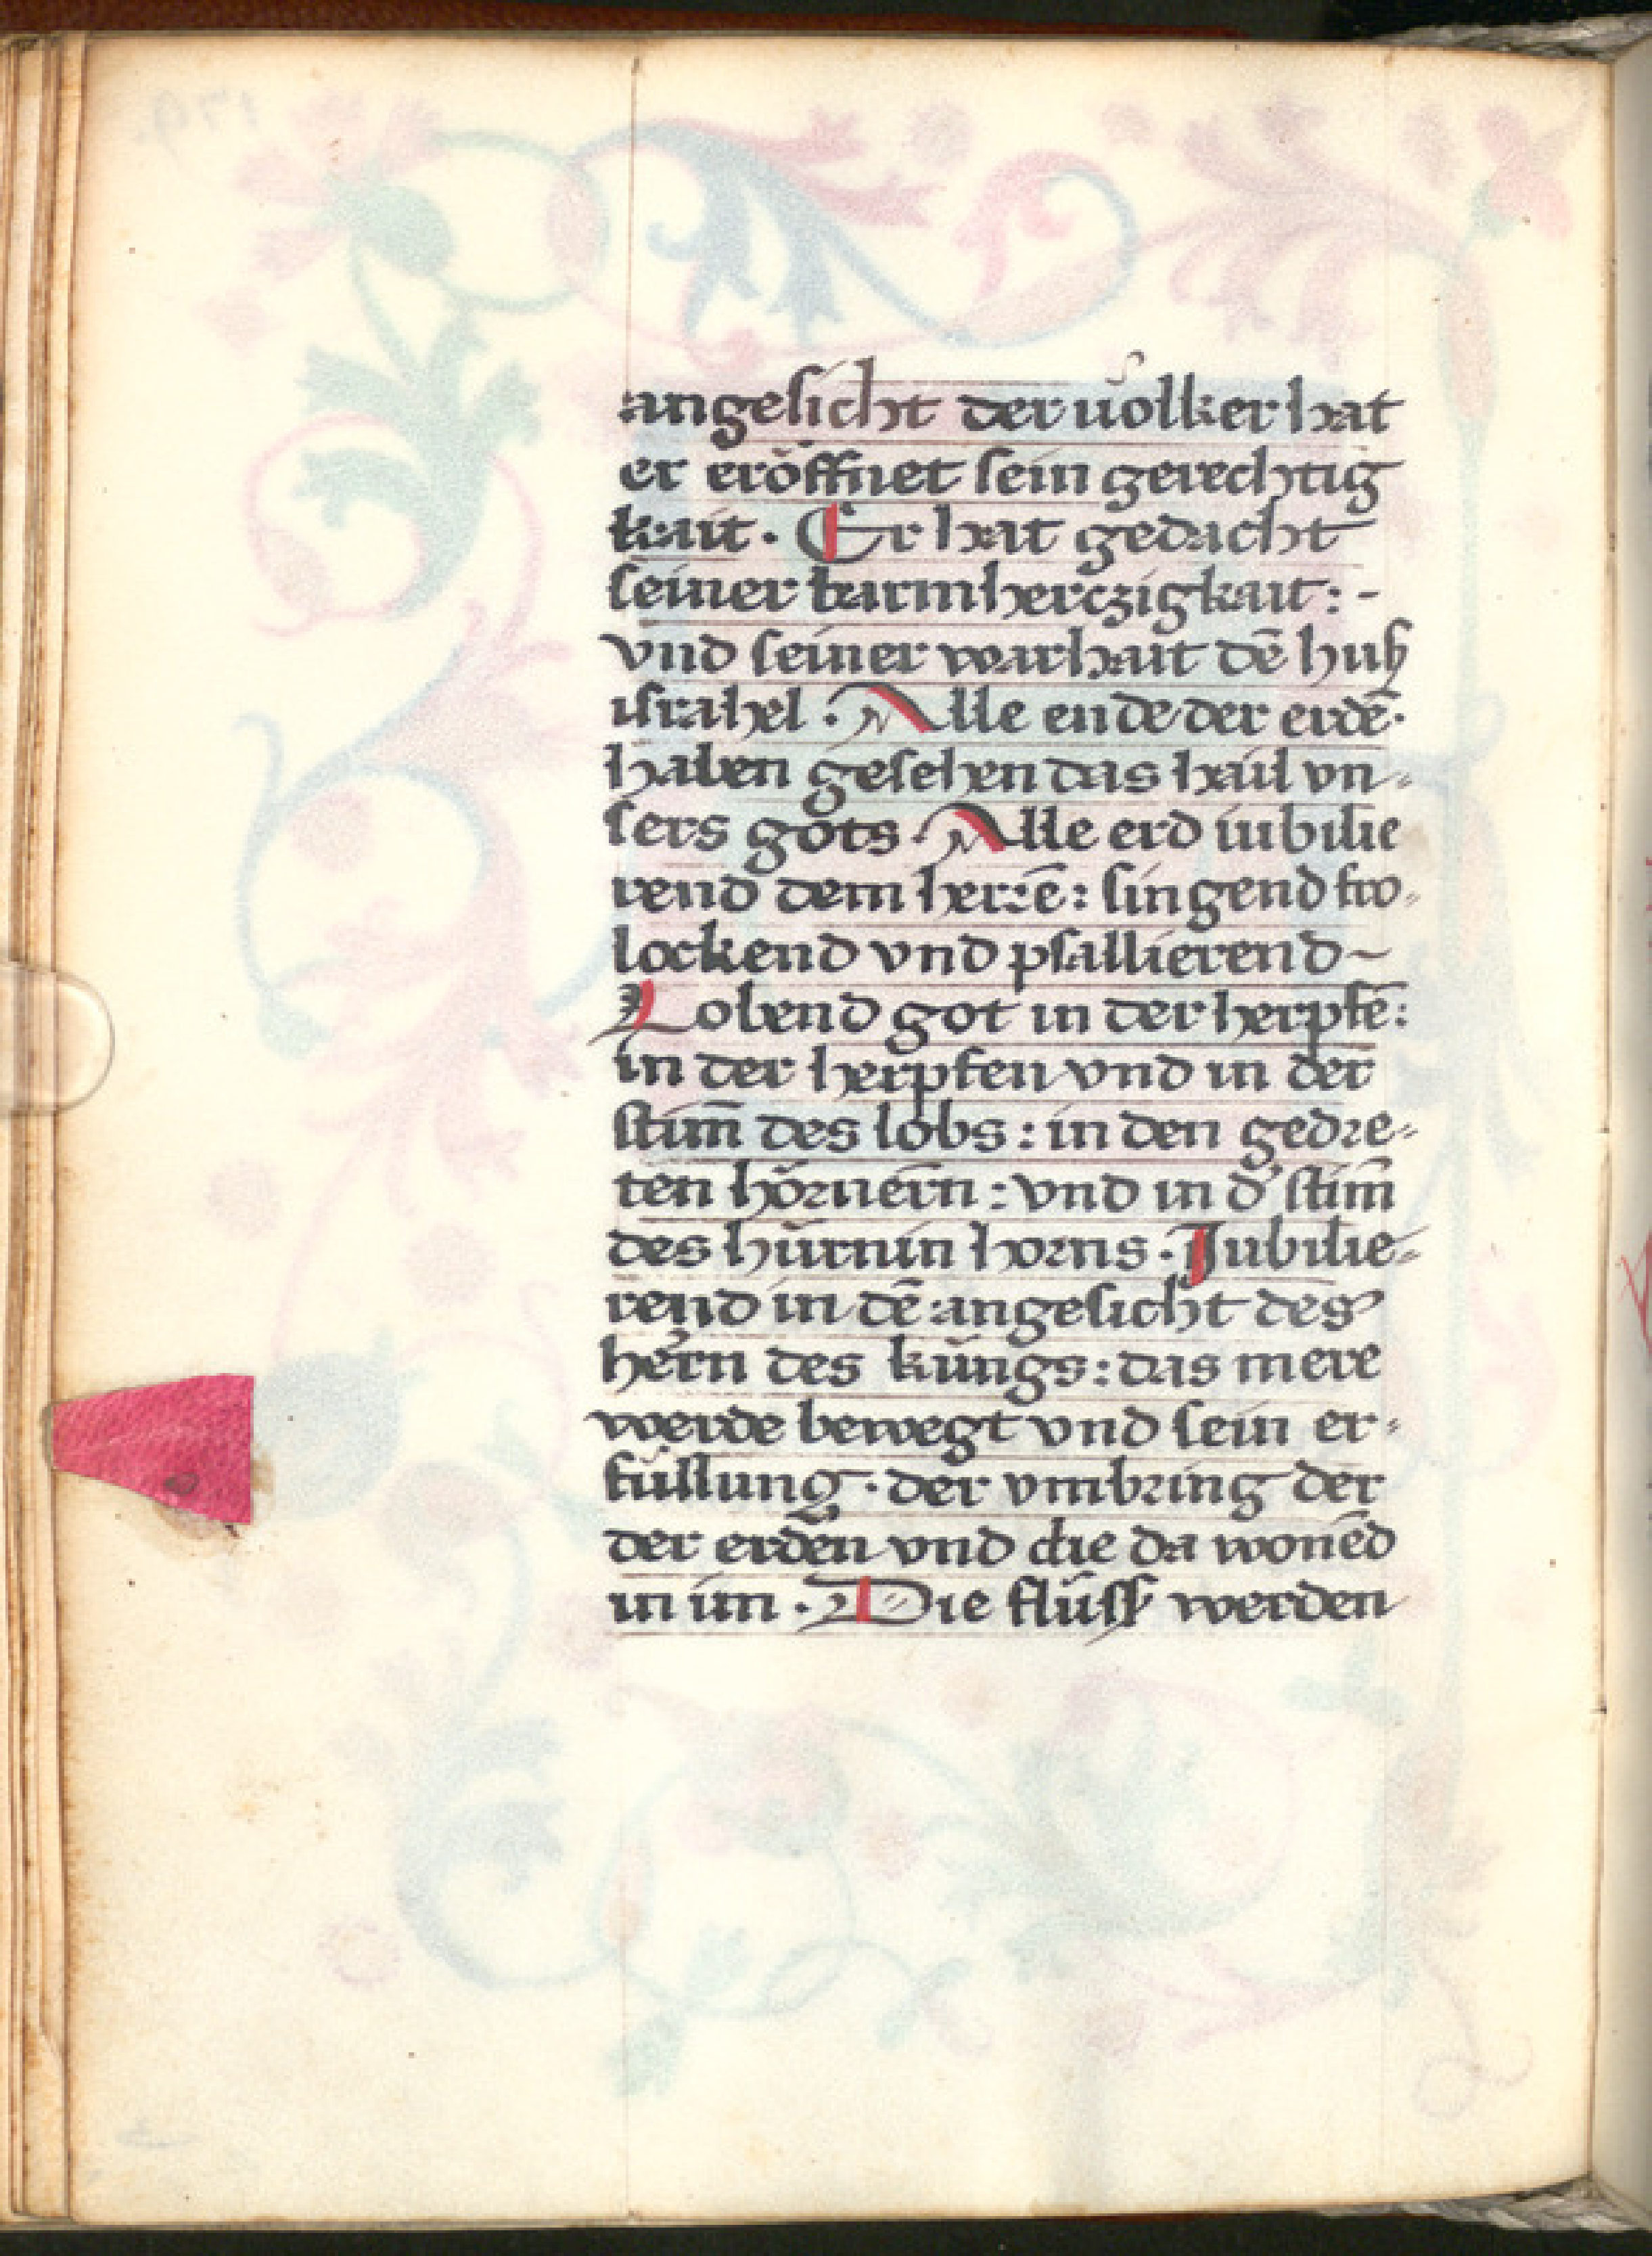 angesicht der uolker hat
er eröffnet sein gerechtig
kait · Er hat gedacht
seiner barmherczigkait : -
vnd seiner warhait dē huß
israhel · Alle ende der erdē ·
haben gesehen das hail vn-
sers gots · Alle erd iubilie
rend dem herrē : singend fro-
lockend vnd psallierend ~
Lobend got in der herpfē :
in der herpfen vnd in der
stim̄ des lobs : in den gedre-
ten hörnern : vnd in d' stim̄
des hürnin horns · Jubilie-
rend in dē angesicht des
hern des küngs : das mere
werde bewegt vnd sein er-
füllung · der vmbring der
der erden vnd die da wonēd
in im · Die flüss werden